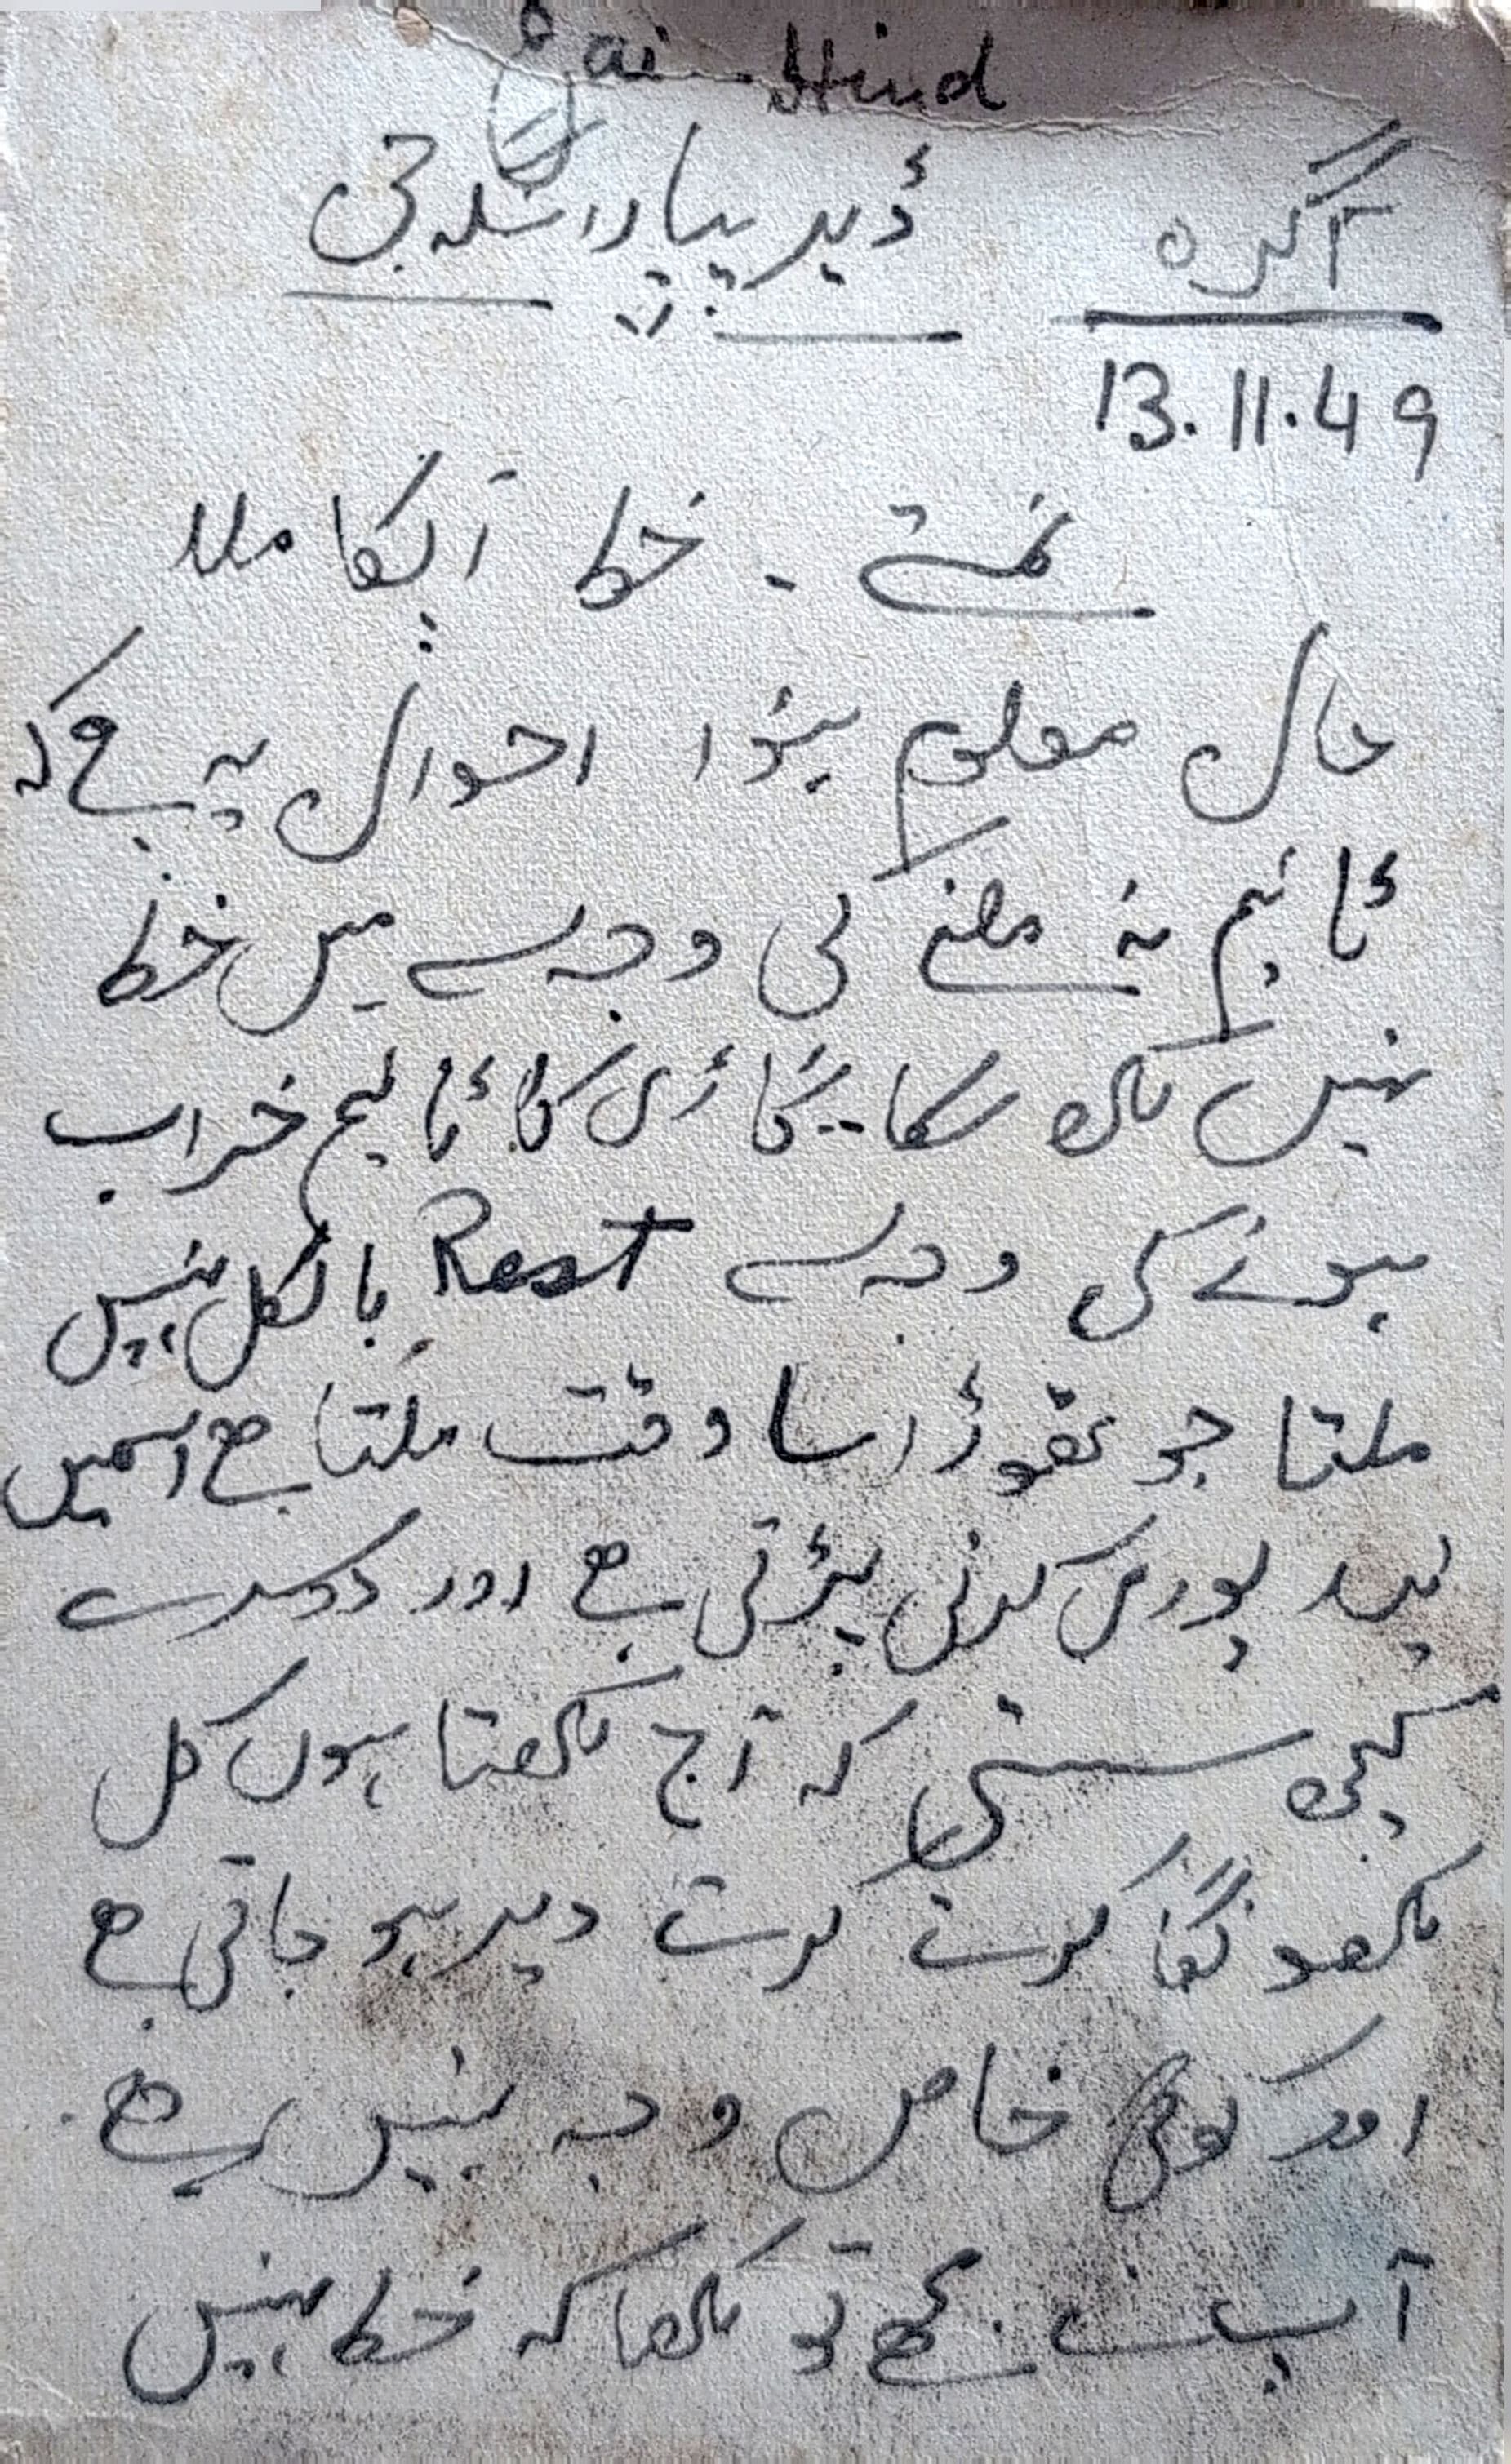 Jai Hind
آگرہ
ڈیر پیارا سنگھ جی
13.11.49
نمستے ۔ خط آپکا ملا
حال معلوم ہؤا احوال یہ ہے کہ
ٹائیم نہ ملنے کی وجہ سے میں خط
نہیں لکھ سکا ۔ گاڑی کا ٹائیم خراب
ہونے کی وجہ سے Rest بالکل نہیں
ملتا جو تھوڑا سا وقت ملتا ہے اسمیں
نیند پوری کرنی پڑتی ہے اور دوسرے
کچھ سستی کہ آج لکھتا ہوں کل
لکھونگا کرتے کرتے دیر ہو جاتی ہے
اور کوئی خاص وجہ نہیں ہے
آپ نے مجھے تو لکھا کہ خط نہیں